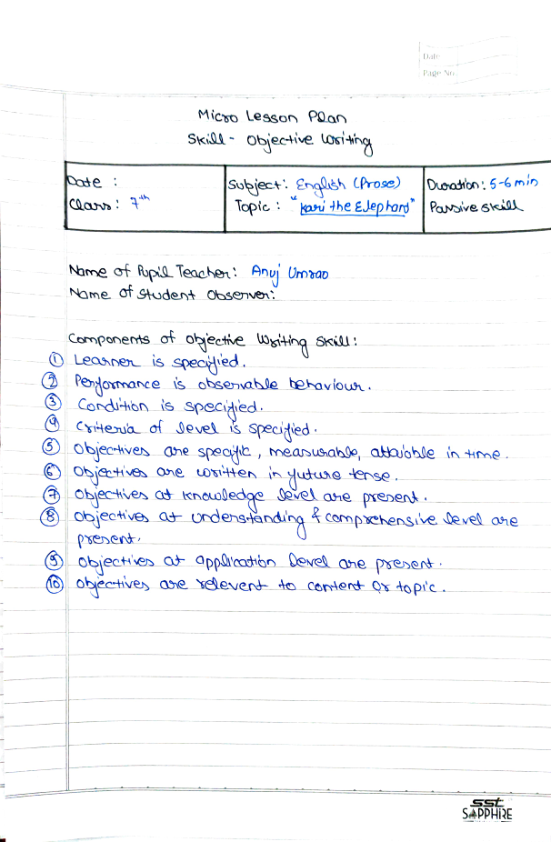 Date
Page No
Micro Lesson Plan
Skill - Objective Writing
Date :
Subject: English (Prose)
Duration: 5-6 min
Class: 7th
Topic : "Kari the Elephant"
Passive skill
Name of Pupil Teacher: Anuj Umrao
Name of Student Observer:
Components of objective Writing skill:
① Learner is specified.
② Performance is observable behaviour.
③ Condition is specified.
④ Criteria of level is specified.
⑤ Objectives are specific, measurable, attaioble in time.
⑥ Objectives are written in future tense.
⑦ Objectives at knowledge level are present.
⑧ objectives at understanding & comprehensive level are
present.
⑨ objectives at application level are present.
⑩ objectives are relevent to content or topic.
sst
SAPPHIRE